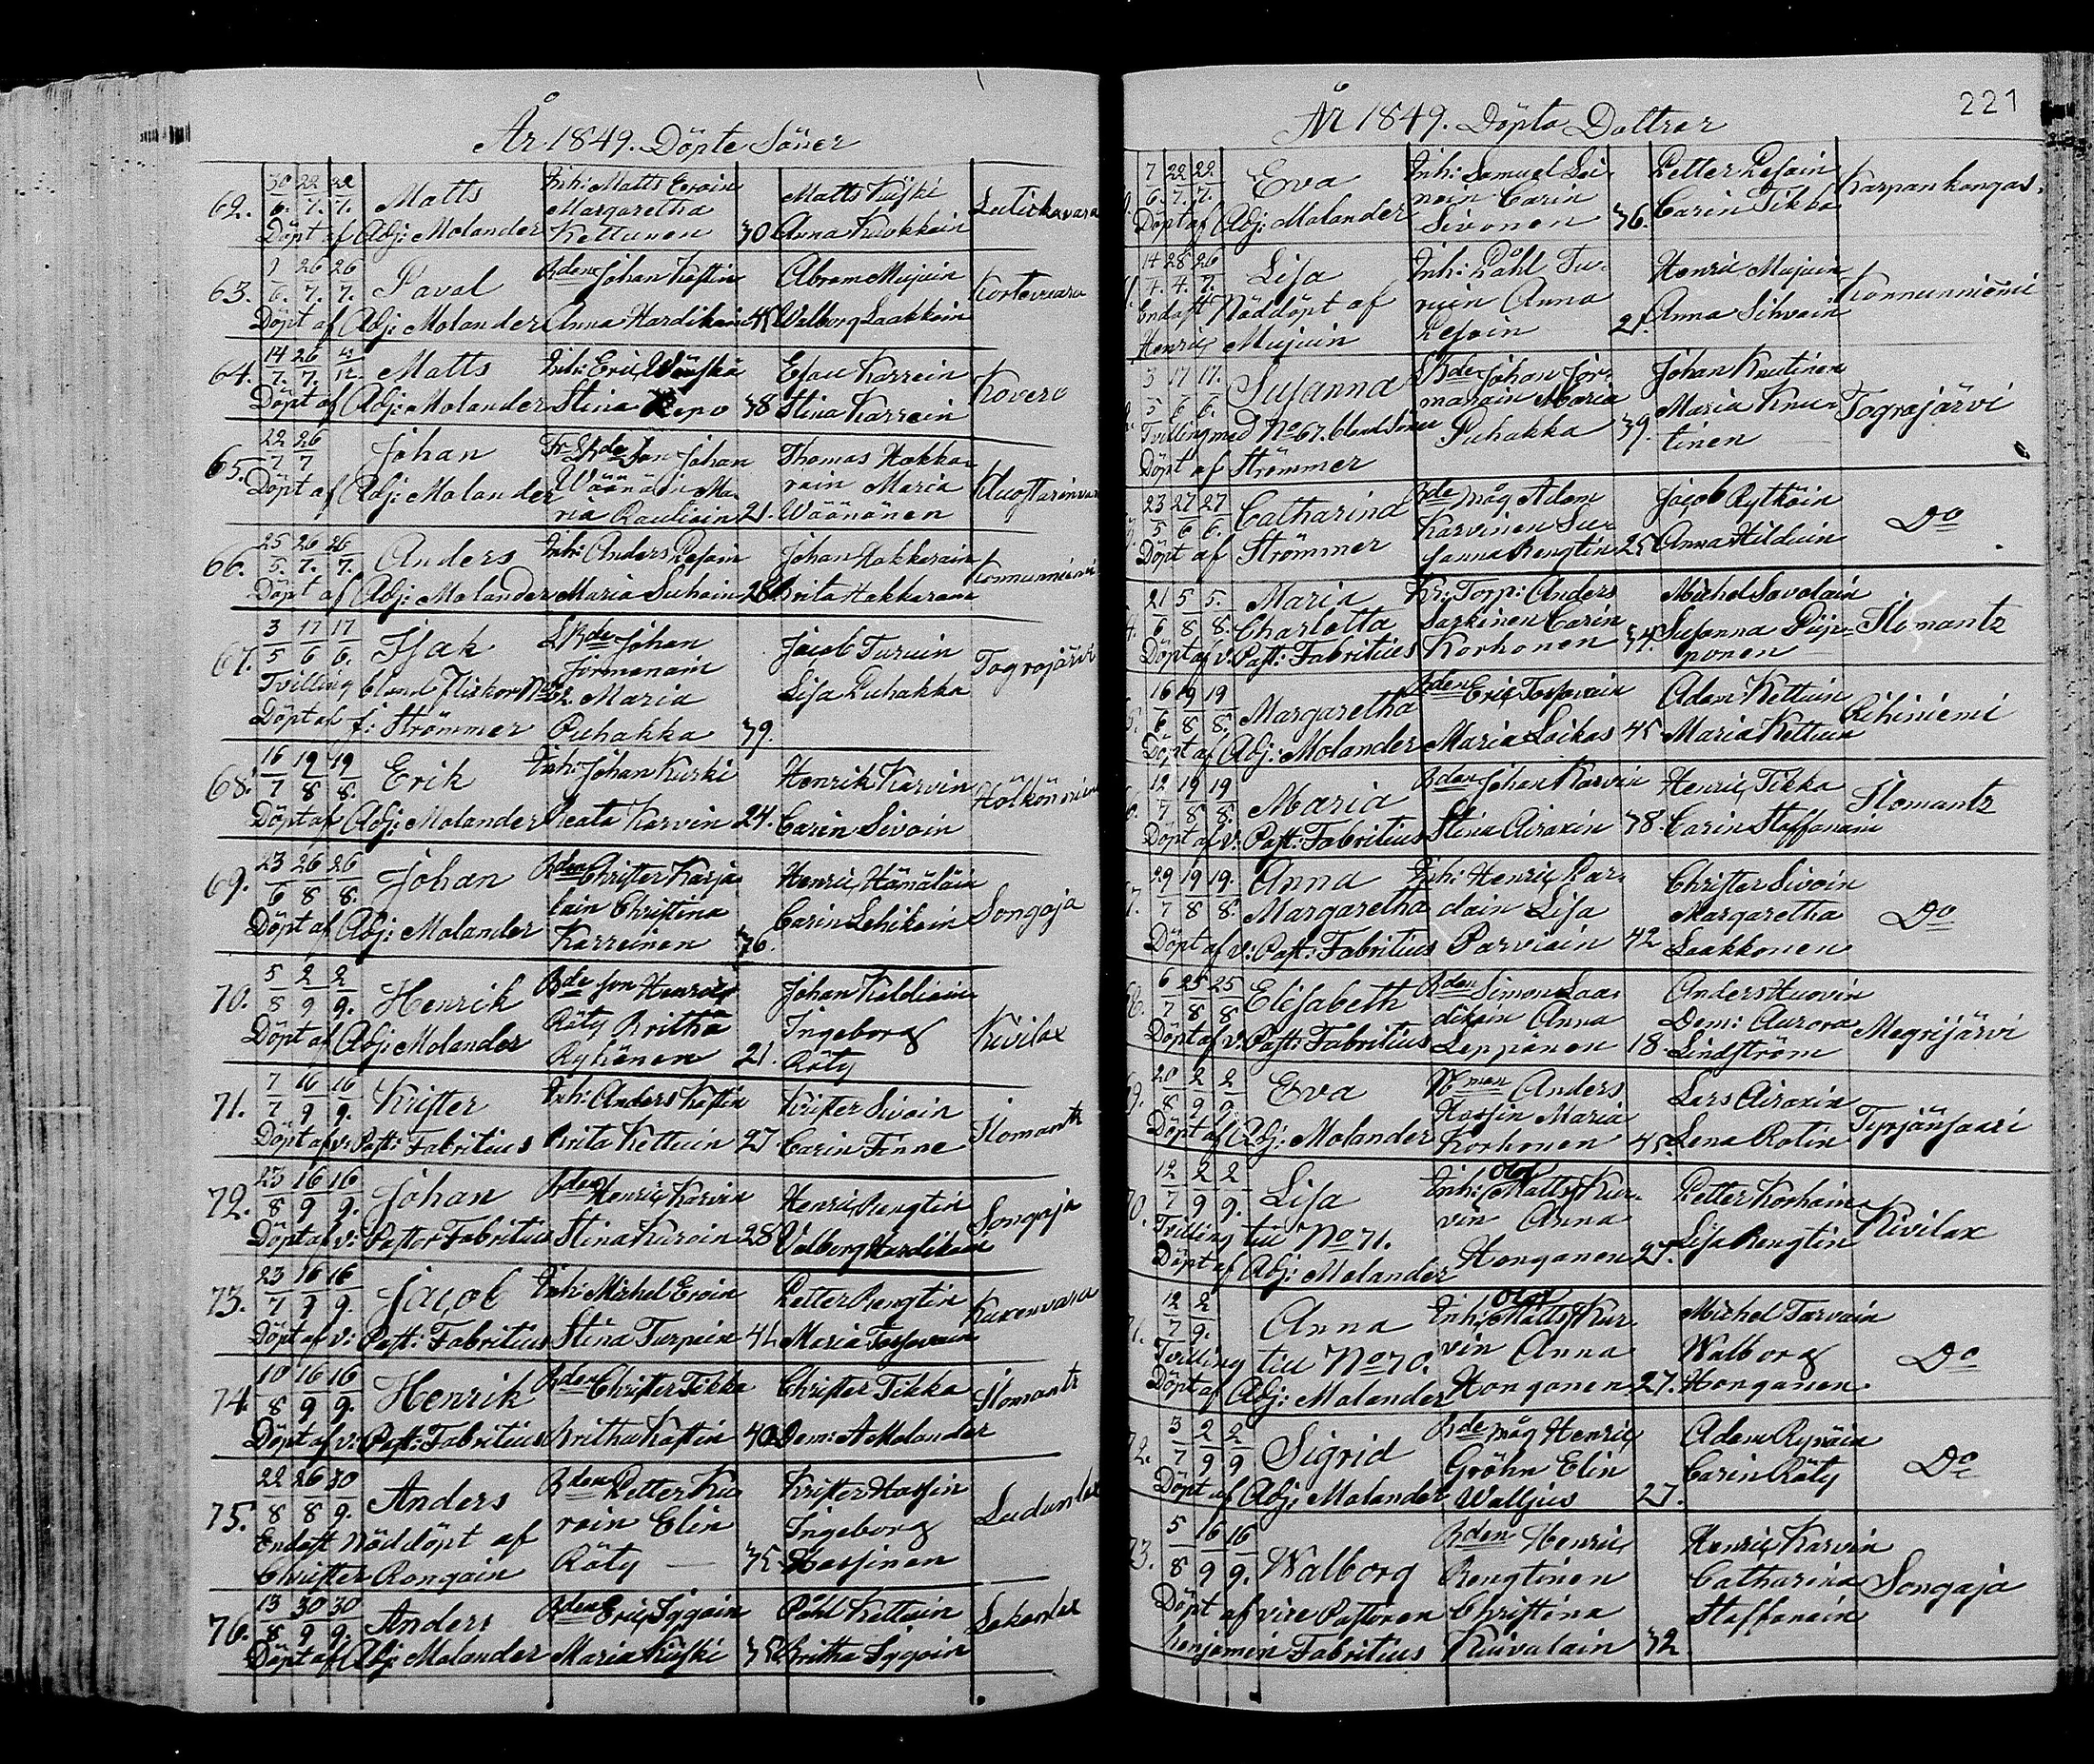 År 1849. Döpte Söner
62. 30/6. 22/7. 22/7. Matts Inh: Matts Eroin Matts Kuiski
Margaretha
Döpt af Adj: Molander Kettunen 30 Anna Kuokkain
63. 1/6. 26/7. 26/7. Paval Bden Johan Kottin Abram Mujuin Kortevaara
Döpt af Adj: Molander Anna Hardikain 45 Walborg Laakkoin
64. 14/7. 26/7. Matts Inh: Eric Esau Karrein Kovero
Döpt af Adj: Molander Stina Repo 38 Stina Karrein
65. 22/7 26/7 Johan Son Johan Thomas Hakka-
Wäänäin Ma- rain Maria
Döpt af Adj: Molander ria Rauliain 21. Wäänänen
66. 25/5. 26/7. 26/7. Anders Inh: Anders Pesoin Johan Hakkarain Konnunniemi
Döpt af Adj: Molander Maria Suhoin 28 Brita Hakkarain
67. 3/5 17/6 17/6. Isak Johan Jacob Turuin Togrojärvi
Jormanain Lisa Puhakka
Tvilling bland flickor No 62. Maria
Döpt af f: Strömmer Puhakka 39.
68. 16/7 19/8 19/8. Erik Inh: Johan Kuski Henrik Karvin
Döpt af Adj: Molander Beata Karvin 24. Carin Sivoin
69. 23/6 26/8 26/8. Johan Bden Christer Karja- Henric Hämäläin Songaja
lain Christina Carin Lehikoin
Döpt af Adj: Molander Karreinen 36.
70. 5/8 2/9 2/9. Henrik Bde son Henric Johan Kaldiain Kivilax
Räty Britha Ingeborg
Döpt af Adj: Molander Rykänen 21. Räty
71. 7/7 16/9 16/9. Krister Inh: Anders Kottin Krister Sivoin Ilomants
Döpt af v: Past: Fabritius Brita Kettuin 27 Carin Finne
72. 23/8 16/9 16/9. Johan Bden Henric Karvin Henric Rengtin Songaja
Döpt af v: Pastor Fabritius Stina Kuroin 28 Valborg Hardikain
73. 23/7 16/9 16/9. Jacob Inh: Michel Eroin Petter Rengtin Kuronvara
Döpt af v: Past: Fabritius Stina Turpein 42. Maria Tossavain
74. 10/8 16/9 16/9. Henrik Bden Christer Tikka Christer Tikka Ilomants
Döpt af v: Past: Fabritius Britha Kottin 40 Dem: A Molander
75. 22/8 26/8 30/9. Anders Bden Petter Ku- Krister Hassin
roin Elin Ingeborg
Endast Nöddöpt af Räty — 35 Hassinen
Christer Rongain
76. 13/8 30/9 30/9. Anders Bden Eric Iggoin Påhl Kettuin
Döpt af Adj: Molander Maria Kuiski 35 Britha Iggoin
221
År 1849. Döpta Döttrar
7/6. 22/7. 22/7. Eva Inh: Samuel Petter Pesoin Karpankangas.
nain Carin Carin Tikka
Döpt af Adj: Molander Sivonen 36.
14/4. 28/4. 26/7. Lisa Inh: Påhl Tu- Henric Mujuin Konnunniemi
Endast Nöddöpt af ruin Anna Anna Sihvoin
Henric Mujuin Pesoin 21.
3/5 17/6 17/6. Susanna Johan Jor- Johan Knutinen Tograjärvi
manain Maria Maria Knu-
Tvilling med No 67. bland Söner Puhakka 39. tinen
Döpt af Strömmer
23/5 27/6 27/6. Catharina Bde måg Adam Jacob Rytköin Do
Karvinen Su-
Döpt af Strömmer sanna Rengtin 25 Anna Hilduin
21/6 5/8 5/8. Maria Kr: Torp: Anders Michel Savolain Ilomants
Charlotta Sarkinen Carin Susanna Piip-
Döpt af v: Past: Fabritius Korhonen 34. ponen
16/6 19/8 19/8. Margaretha Bden Eric Tossavain Adam Kettuin Riihiniemi
Döpt af Adj: Molander Maria Laikas 45 Maria Kettuin
12/7 19/8 19/8. Maria Bden Johan Karvin Henric Tikka Ilomants
Döpt af v: Past: Fabritius Stina Airaxin 38. Carin Staffanain
29/7 19/8 19/8. Anna Inh: Henric Par- Christer Sivoin
Margaretha dain Lisa Margaretha Do
Döpt af v: Past: Fabritius Parviain 42 Laakkonen
6/7 25/8 25/8 Elisabeth Bden Simon Laa- Anders Huovin
dikain Anna Dem: Aurora Megrijärvi
Döpt af v: Past: Fabritius Leppänen 18. Lindström
20/8 2/9 2/9 Eva Anders Lars Airaxin
Hassin Maria Tyrjänsaari
Döpt af Adj: Molander Korhonen 45. Lena Rotin
12/7 2/9 2/9. Lisa Inh: Olof Matts Kur- Petter Korhoin
vin Anna Kivilax
Tvilling till No 71. Lisa Rengtin
Döpt af Adj: Molander Honganen 27.
12/7 2/9. Anna Inh: Olof Matts Kur- Michel Tarvain
vin Anna Walborg Do
Tvilling till No 70.
Döpt af Adj: Molander Honganen 27. Honganen.
3/7 2/9 2/9 Sigrid Bde måg Henric Adam Rypäin
Gröhn Elin Carin Räty Do
Döpt af Adj: Molander Walljus 27.
5/8 16/9 16/9. Walborg Bden Henric Henric Karvin
Rengtinen Catharina Songaja
Döpt af vice Pastoren Christina Staffanain
Benjamin Fabritius Kuivalain 32